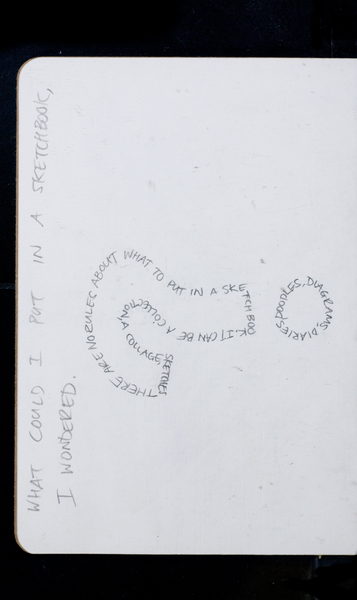 WHAT COULD I PUT IN A SKETCHBOOK,
I WONDERED.
THERE ARE NO RULES ABOUT WHAT TO PUT IN A SKETCHBOOK. IT CAN BE A COLLECTION
SKETCHES
DOODLES, DIAGRAMS, DIARIES